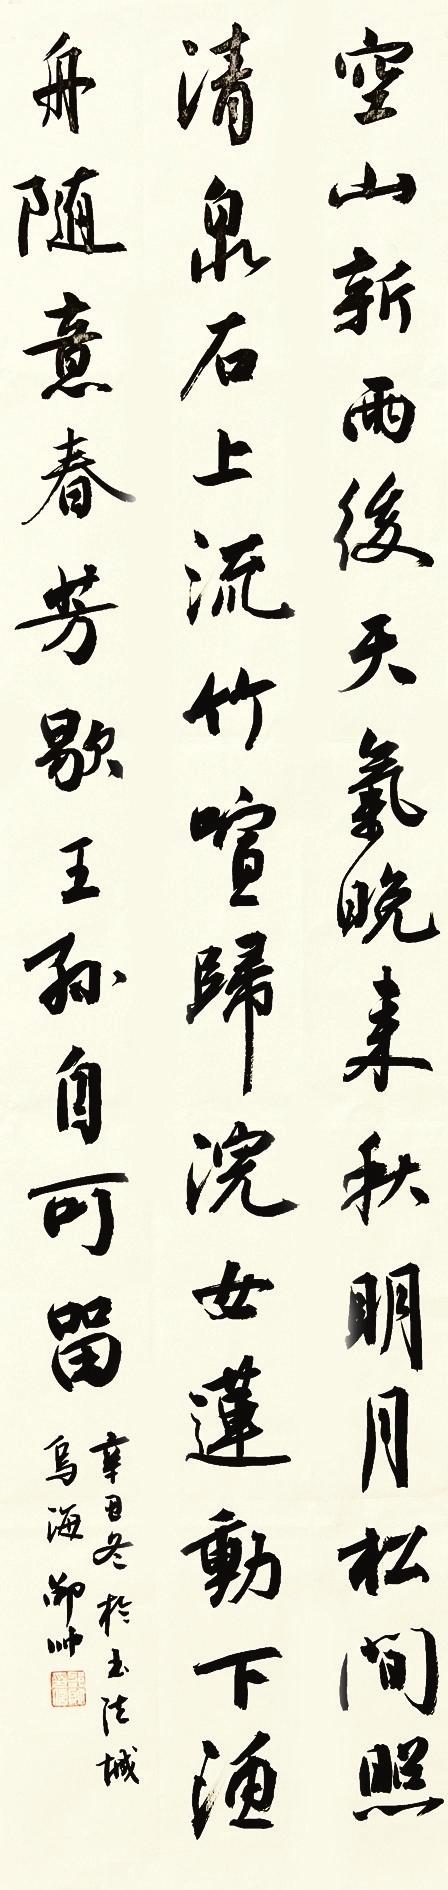 空山新雨後天氣晚来秋明月松间照
清泉石上流竹喧歸浣女蓮動下漁
舟随意春芳歇王孫自可留
辛丑冬於书法城
乌海